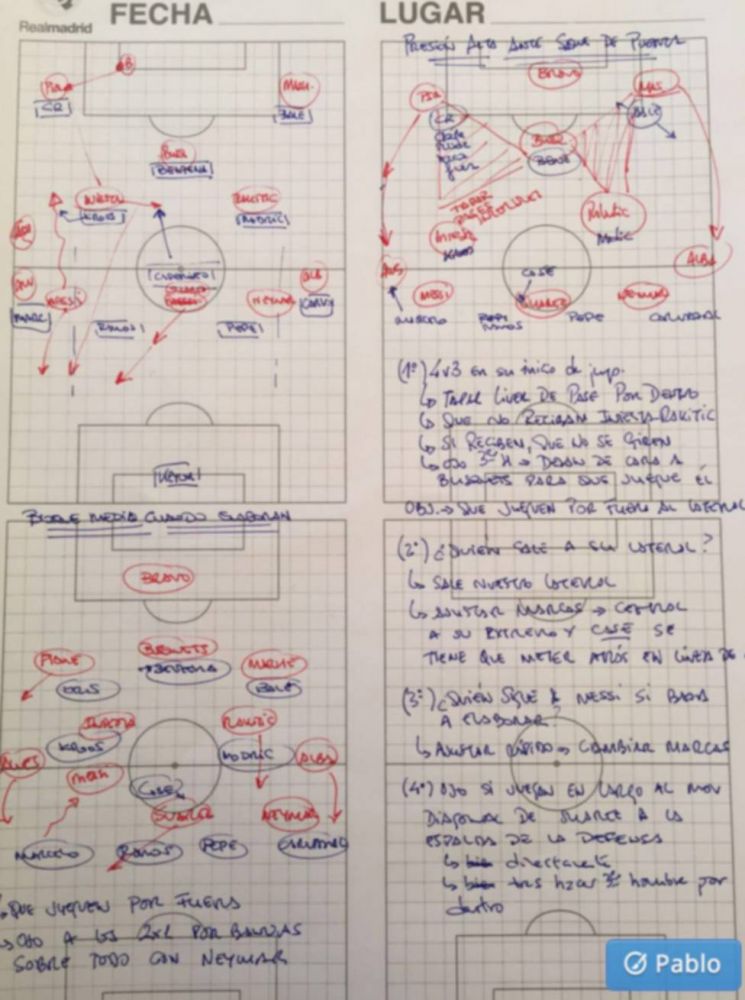 Realmadrid
FECHA
LUGAR
B
CR
BALE
BUSI
BENZEMA
INIESTA
KROOS
RAKITIC
MODRIC
CASEMIRO
SUAREZ
MESSI
NEYMAR
MARC
CARV
RAMOS
PEPE
KEYLOR
PRESIÓN ALTA ANTE SAQUE DE PUERTA
BRAVO
PIQ
MAS
CR
BALE
BUSI
BENZE
TAPAR
PASES
INTERIORES
INIESTA
KROOS
Rakitic
Modric
ALBA
CASE
MESSI
SUAREZ
NEYMAR
MARCELO
RAMOS
PEPE
CARVAJAL
(1º) 4v3 en su inicio de juego.
↳ TAPAR LINEA DE PASE POR DENTRO
↳ QUE NO RECIBAN INIESTA-RAKITIC
↳ SI RECIBEN, QUE NO SE GIREN
↳ OJO 3er H → DEJAN DE CARA A
BUSQUETS PARA QUE JUEGUE ÉL
OBJ. → QUE JUEGUEN POR FUERA AL LATERAL
(2º) ¿QUIÉN SALE A SU LATERAL?
↳ SALE NUESTRO LATERAL
↳ AJUSTAR MARCAS → CENTRAL
A SU EXTREMO Y CASE SE
TIENE QUE METER ATRÁS EN LÍNEA DE
(3º) ¿QUIÉN SIGUE A MESSI SI BAJA
A ELABORAR?
↳ AJUSTAR RÁPIDO → CAMBIAR MARCAS
(4º) OJO SI JUEGAN EN LARGO AL MOV
DIAGONAL DE SUAREZ A LA
ESPALDA DE LA DEFENSA
↳ bien directamente
↳ bien tras hacer 3er hombre por
dentro
BLOQUE MEDIO CUANDO ELABORAN
BRAVO
PIQUE
BUSQUETS
BENZEMA
MASCHE
CRIS
BALE
INIESTA
KROOS
RAKITIC
MODRIC
ALVES
MESSI
CASE
ALBA
SUAREZ
NEYMAR
MARCELO
RAMOS
PEPE
CARVAJAL
↳ QUE JUEGUEN POR FUERA
↳ OJO A LOS 2x1 POR BANDAS
SOBRE TODO CON NEYMAR
Pablo